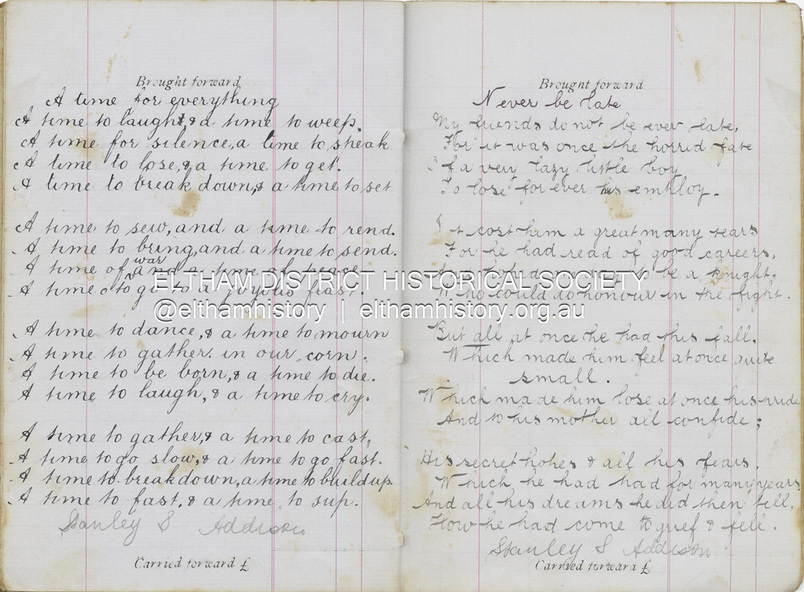 Brought forward
A time for everything
A time to laugh & a time to weep.
A time for silence, a time to speak
A time to lose, & a time to get.
A time to break down, & a time to set
A time to sew, and a time to rend.
A time to bring, and a time to send.
A time of war and a time of peace
A time to go to a joyous feast.
A time to dance, & a time to mourn
A time to gather in our corn.
A time to be born, & a time to die.
A time to laugh, & a time to cry.
A time to gather, & a time to cast,
A time to go slow, & a time to go fast.
A time to breakdown, a time to build up
A time to fast, & a time to sup.
Stanley S Addison
Carried forward £
Brought forward
Never be late
My friends do not be ever late,
For it was once the horrid fate
Of a very lazy little boy
To lose for ever his employ.
It cost ham a great many tears
For he had read of good careers,
to be a knight,
Who could do honour in the fight.
But all at once he had this fall.
Which made him feel at once quite
small.
Which made him lose at once his pride
And to his mother all confide;
His secret hopes & all his fears.
Which he had had for many years
And all his dreams he did then tell,
How he had come to grief & fell.
Stanley S Addison
Carried forward £
ELTHAM DISTRICT HISTORICAL SOCIETY
@elthamhistory | elthamhistory.org.au